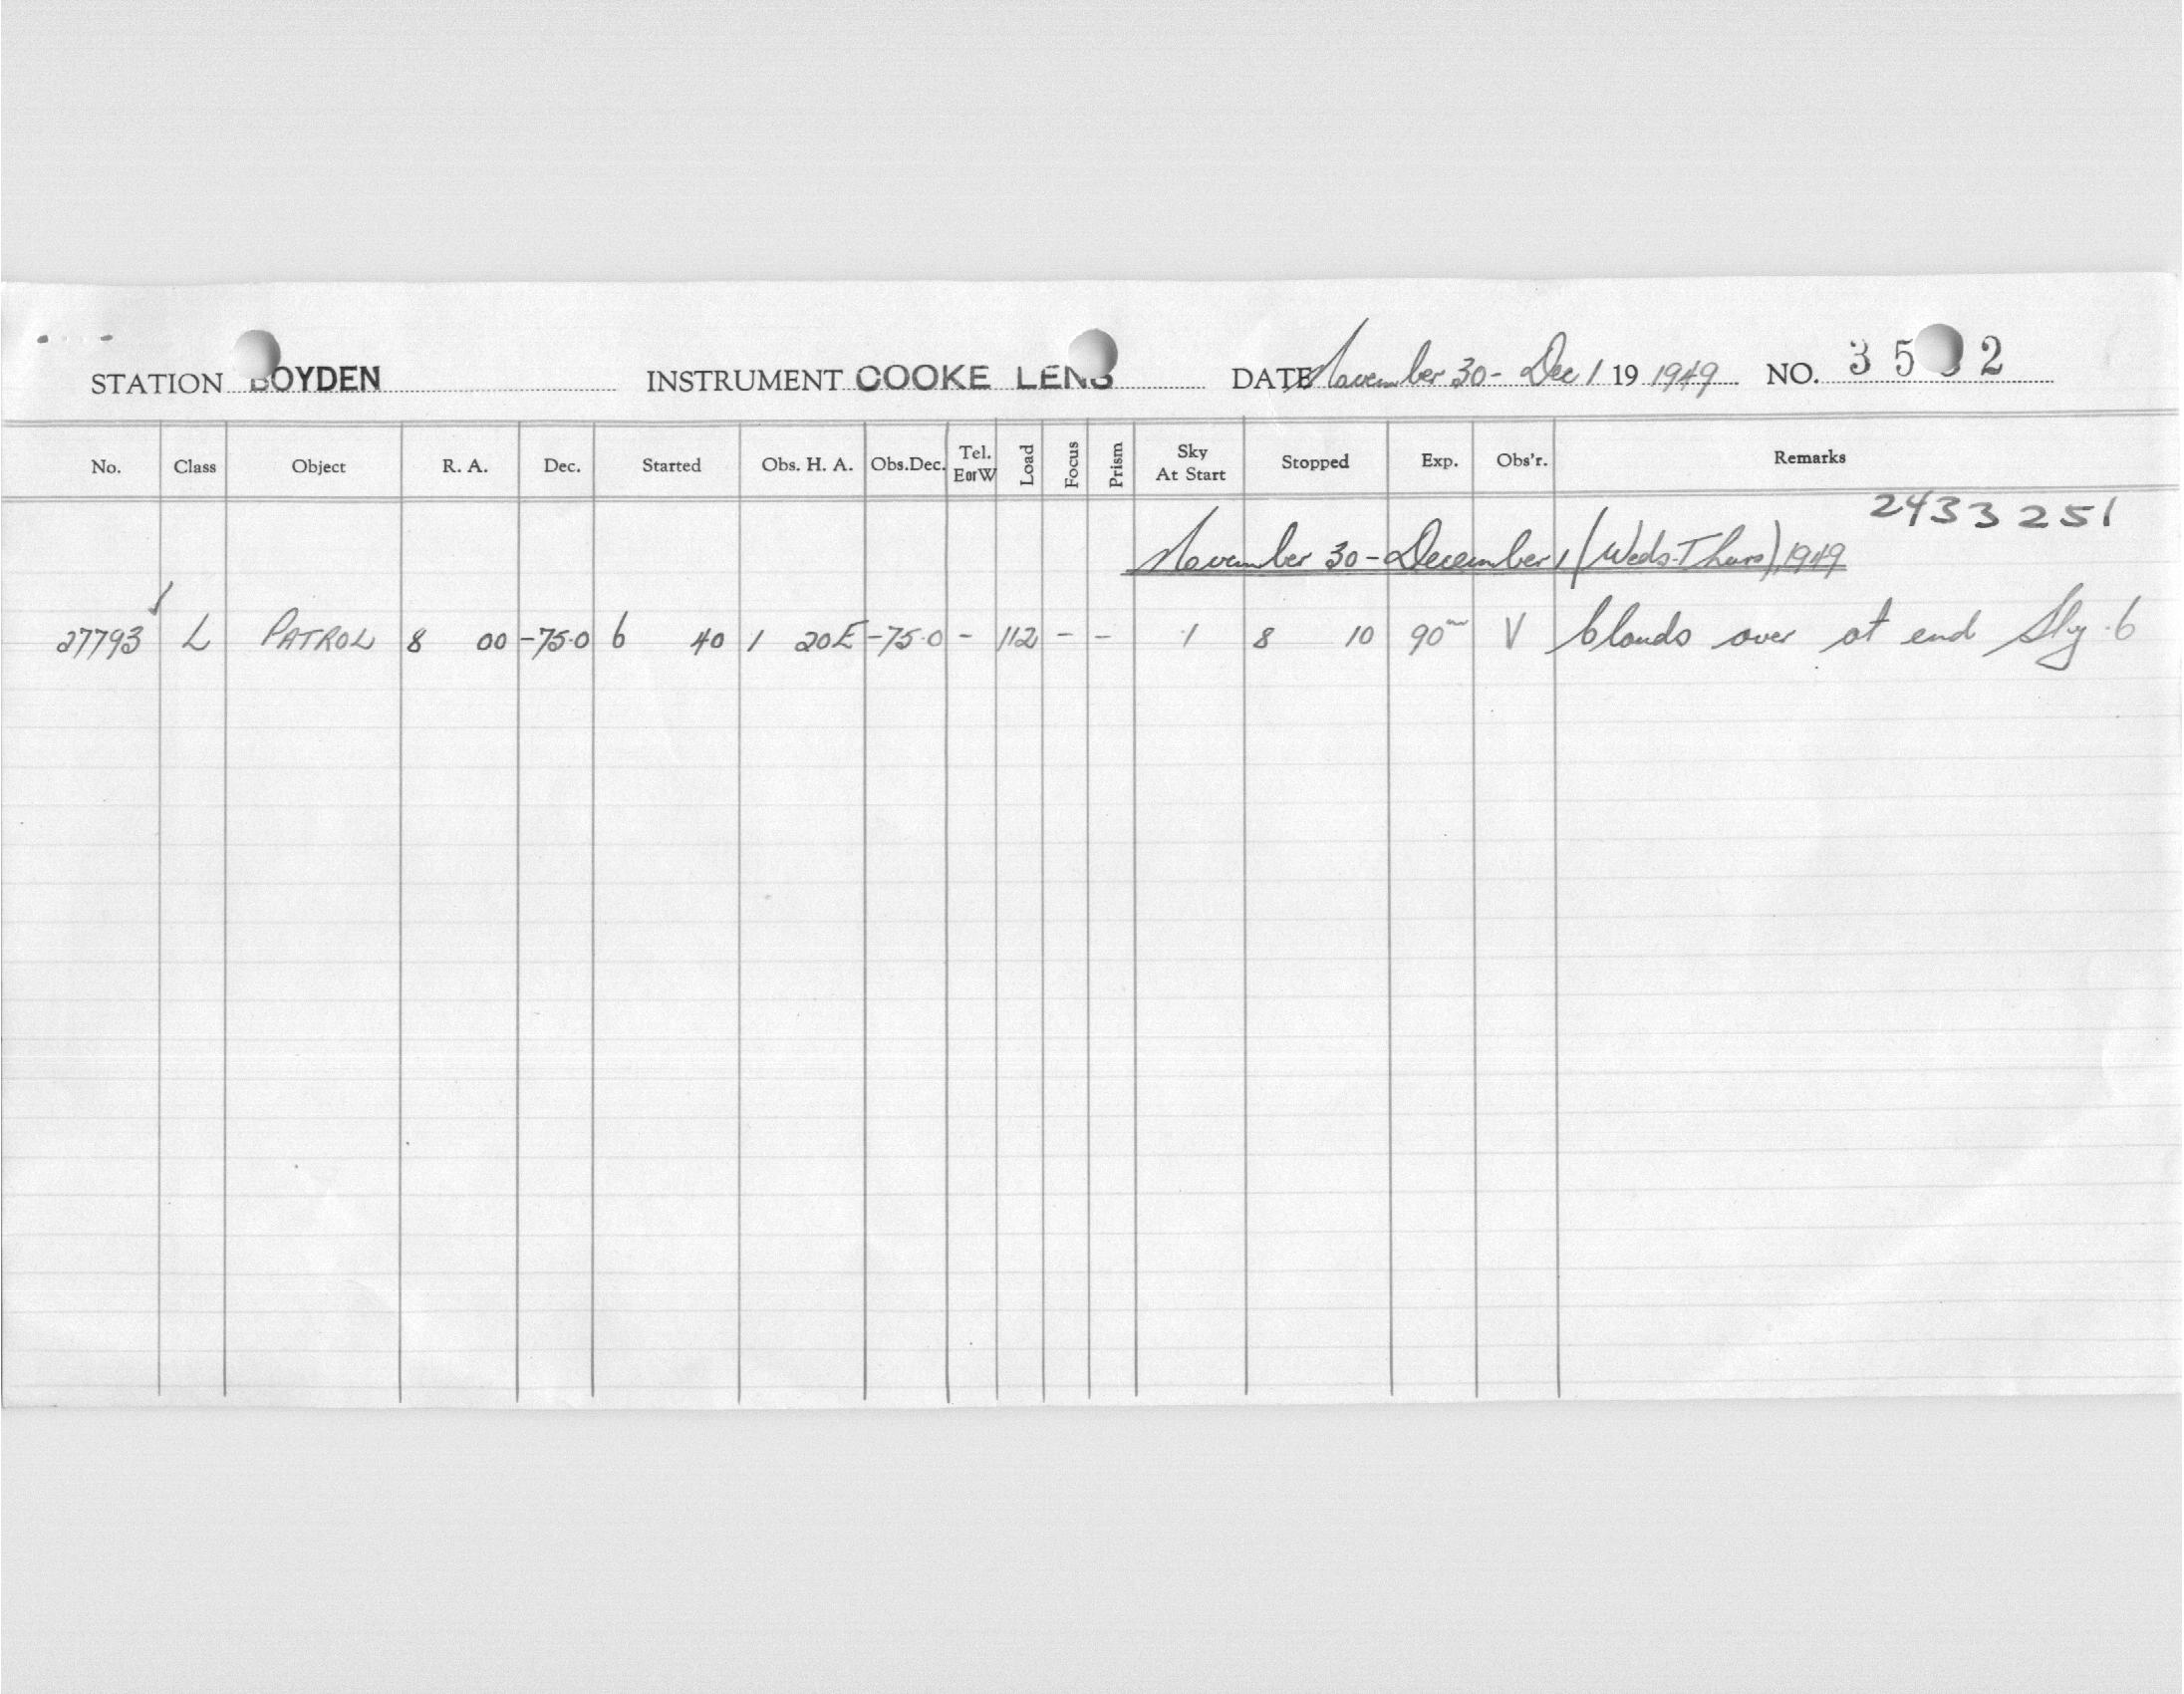 STATION BOYDEN INSTRUMENT COOKE LENS DATE November 30 - Dec 1 19 1949 NO. 35 2
No. Class Object R. A. Dec. Started Obs. H. A. Obs.Dec. Tel. EorW Load Focus Prism Sky At Start Stopped Exp. Obs'r. Remarks
2433251
November 30 - December 1 (Weds-Thurs), 1949
27793 ✓ L PATROL 8 00 -75.0 6 40 1 20E -75.0 - 112 - - 1 8 10 90m V Clouds over at end Sky .6